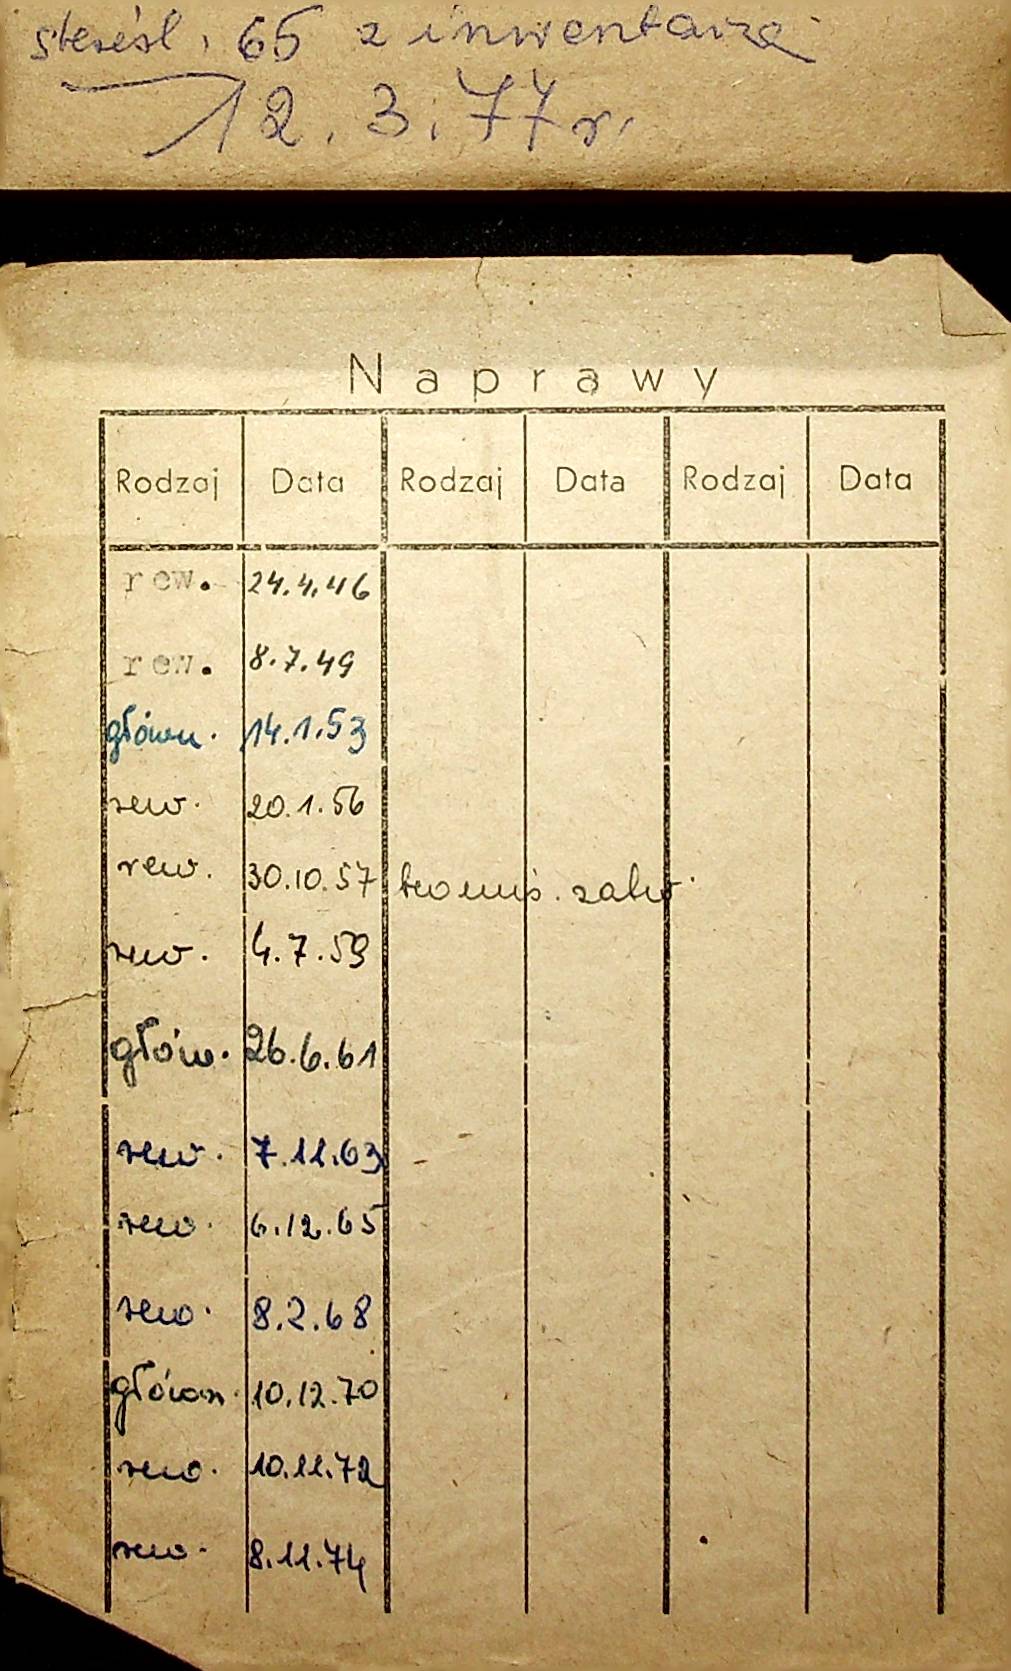 skreśl. 65 z inwentarza
12.3.77r.
Naprawy
Rodzaj Data Rodzaj Data Rodzaj Data
rew. 24.4.46
rew. 8.7.49
główn. 14.1.53
rew. 20.1.56
rew. 30.10.57
rew. 4.7.59
głów. 26.6.61
rew. 7.11.63
rew. 6.12.65
rew. 8.2.68
główn. 10.12.70
rew. 10.11.72
rew. 8.11.74